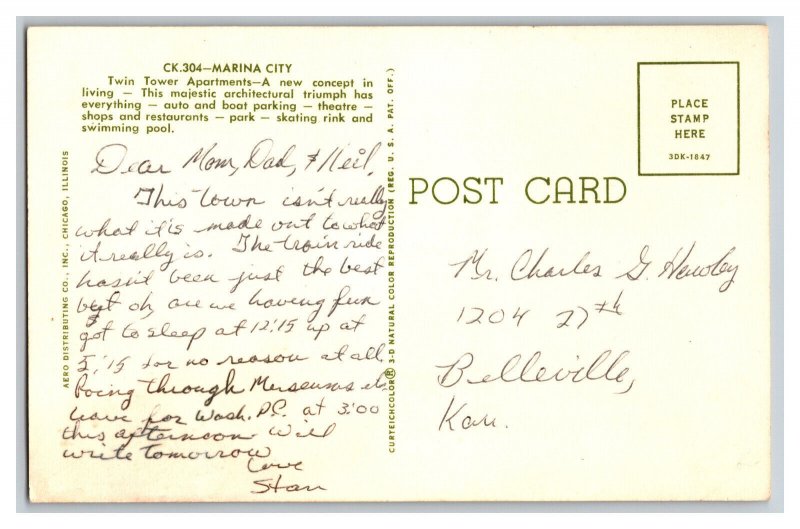 CK.304—MARINA CITY
Twin Tower Apartments—A new concept in
living — This majestic architectural triumph has
everything — auto and boat parking — theatre —
shops and restaurants — park — skating rink and
swimming pool.
Dear Mom, Dad, & Neil,
This town isn't really
what it is made out to what
it really is. The train ride
hasn't been just the best
but oh, are we having fun
I got to sleep at 12:15 up at
5:15 for no reason at all
Going through Museums etc
leave for Wash. D.C. at 3:00
this afternoon will
write tomorrow
Love
Stan
AERO DISTRIBUTING CO., INC., CHICAGO, ILLINOIS
CURTEICHCOLOR® 3-D NATURAL COLOR REPRODUCTION (REG. U. S. A. PAT. OFF.)
POST CARD
PLACE
STAMP
HERE
3DK-1847
Mr. Charles G.
1204 27th
Belleville,
Kan.